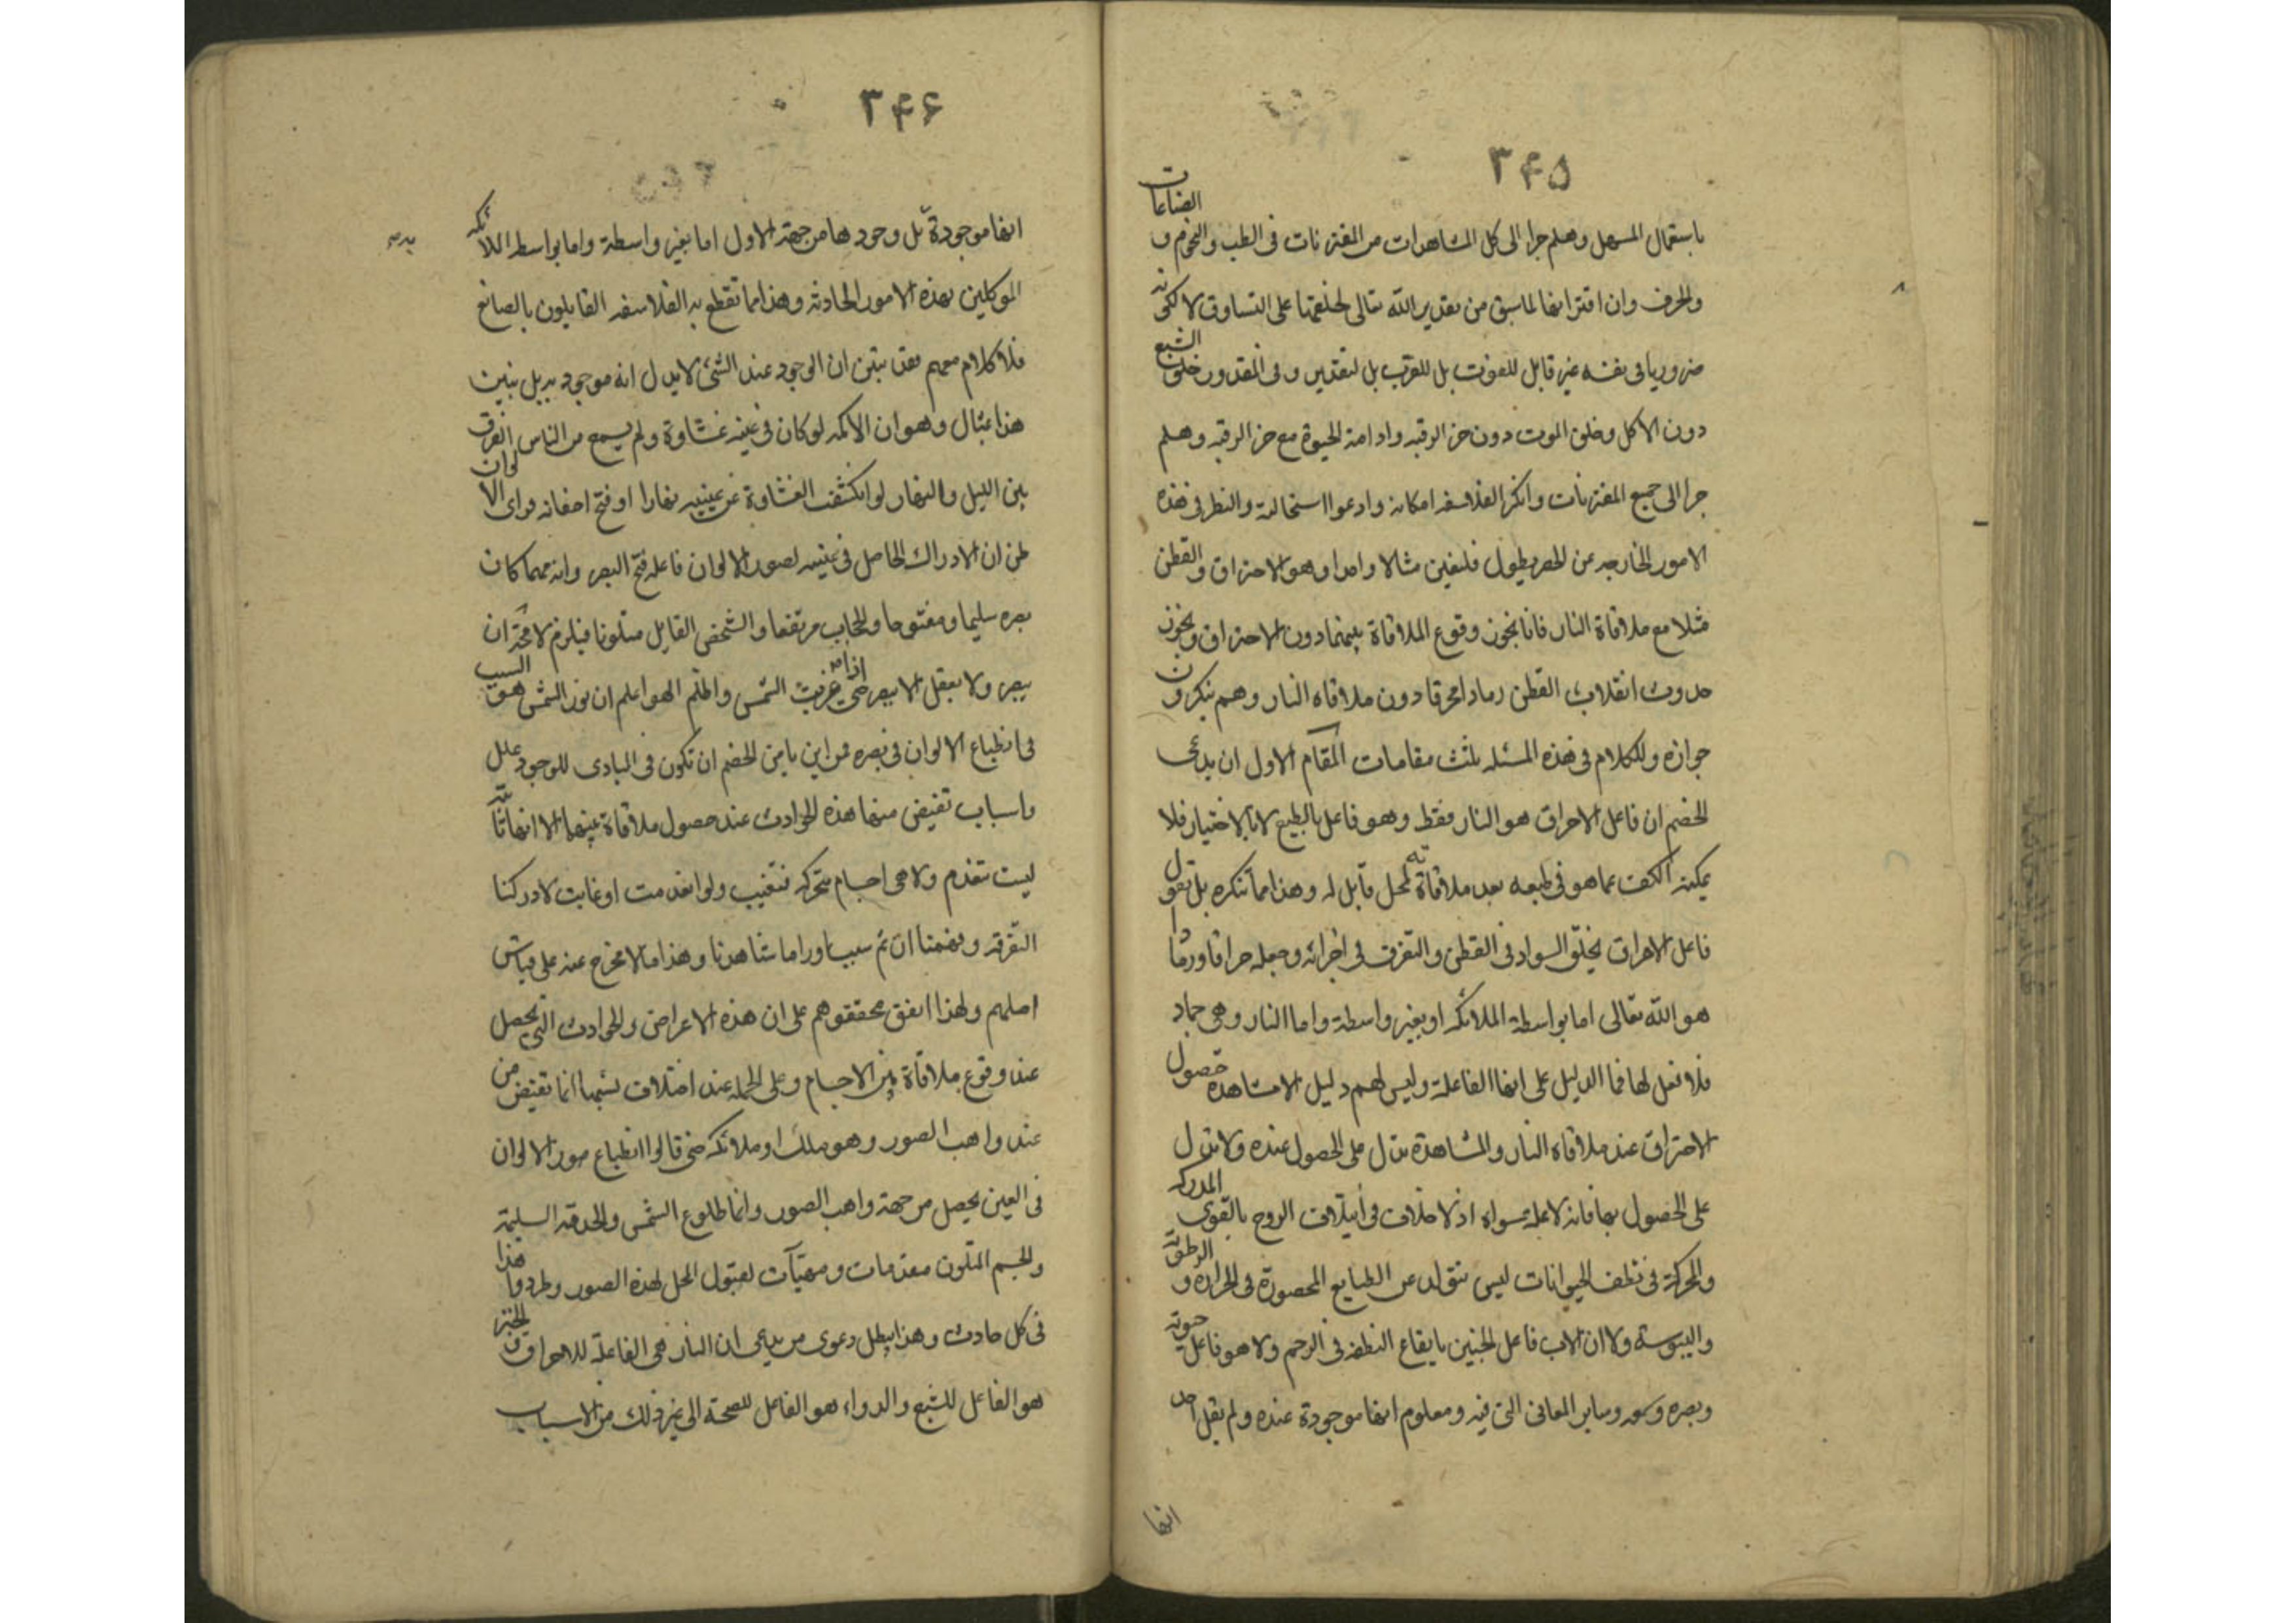 ۳۴۵
باستعمال المسهل وهلم جرا الى كل المشاهدات من المقترنات فى الطب والنجوم و الصناعات
والحرف وان اقترانها لما سبق من تقدير الله تعالى لخلقها على التساوق لا لكونه
ضروريا فى نفسه غير قابل للفوت بل للقرب بل لتقدير وفى المقدور خلق الشبع
دون الاكل وخلق الموت دون حز الرقبه وادامة الحيوة مع حز الرقبه وهلم
جرا الى جميع المقترنات وانكر الفلاسفه امكانه وادعوا استحالته والنظر فى هذه
الامور الخارجه عن الحصر يطول فلنعين مثالا واحدا وهو الاحتراق والقطن
مثلا مع ملاقاة النار فانا نجوز وقوع الملاقاة بينهما دون الاحتراق ونجوز
حدوث انقلاب القطن رمادا محرقا دون ملاقاه النار وهم ينكرون
جوازه وللكلام فى هذه المسئله ثلث مقامات المقام الاول ان يدعى
الخصم ان فاعل الاحراق هو النار فقط وهو فاعل بالطبع لا بالاختيار فلا
يمكنه الكف عما هو فى طبعه بعد ملاقاته لمحل قابل له وهذا مما ننكره بل نقول
فاعل الاحراق بخلق السواد فى القطن والتفرق فى اجزائه وجعله حراقا ورمادا
هو الله تعالى اما بواسطة الملائكه او بغير واسطة واما النار وهى جماد
فلا فعل لها فما الدليل على انها الفاعلة وليس لهم دليل الا مشاهدة حصول
الاحتراق عند ملاقاه النار والمشاهدة تدل على الحصول عنده ولا تدل
على الحصول بها فانه لا علة سواه اذ لا خلاف فى ايتلاف الروح بالقوى المدركه
والمحركة فى نطف الحيوانات ليس يتولد عن الطبايع المحصورة فى الحرارة و الرطوبة
واليبوسة ولا ان الاب فاعل الجنين بايقاع النطفه فى الرحم ولا هو فاعل حيوته
وبصره وسمعه وساير المعانى التى فيه ومعلوم انها موجودة عنده ولم يقل احد
انها
۳۴۶
انها موجودة به بل وجودها من جهة الاول اما بغير واسطة واما بواسطة الملائكه
الموكلين بهذه الامور الحادثه وهذا مما تقطع به الفلاسفه القايلون بالصانع
فلا كلام معهم فقد تبين ان الوجود عند الشئ لا يدل انه موجود به بل نبين
هذا بمثال وهو ان الاكمه لو كان فى عينه غشاوة ولم يسمع من الناس الفرق
بين الليل والنهار لو انكشف الغشاوة عن عينيه نهارا او فتح اجفانه فراى الالوان
ظن ان الادراك الحاصل فى عينيه لصور الالوان فاعله فتح البصر وانه مهما كان
بصره سليما ومفتوحا والحجاب مرتفعا والشخص القابل متلونا فيلزم لا محة ان
يبصر ولا يعقل الا يبصر حتى اذا غربت الشمس واظلم الهواء علم ان نور الشمس هو السبب
فى انطباع الالوان فى بصره فمن اين يامن الخصم ان تكون فى المبادى للوجود علل
واسباب تفيض منها هذه الحوادث عند حصول ملاقاة بينها الا انها ثابتة
ليست تنعدم ولا هى اجسام متحركه فتغيب ولو انعدمت او غابت لادركنا
التفرقه وفهمنا ان ثم سببا ورا ما شاهدنا وهذا ما لا مخرج عنه على قياس
اصلهم ولهذا اتفق محققوهم على ان هذه الاعراض والحوادث التى تحصل
عند وقوع ملاقاة بين الاجسام وعلى الجملة عند اختلاف نسبها انما تفيض من
عند واهب الصور وهو ملك او ملائكه حتى قالوا انطباع صور الالوان
فى العين يحصل من جهة واهب الصور وانما طلوع الشمس والحدقه السليمة
والجسم المتلون معدمات ومهيآت لقبول المحل لهذه الصور وطردوا هذا
فى كل حادث وهذا يبطل دعوى من يدعى ان النار هى الفاعلة للاحراق والخبز
هو الفاعل للشبع والدواء هو الفاعل للصحة الى غير ذلك من الاسباب